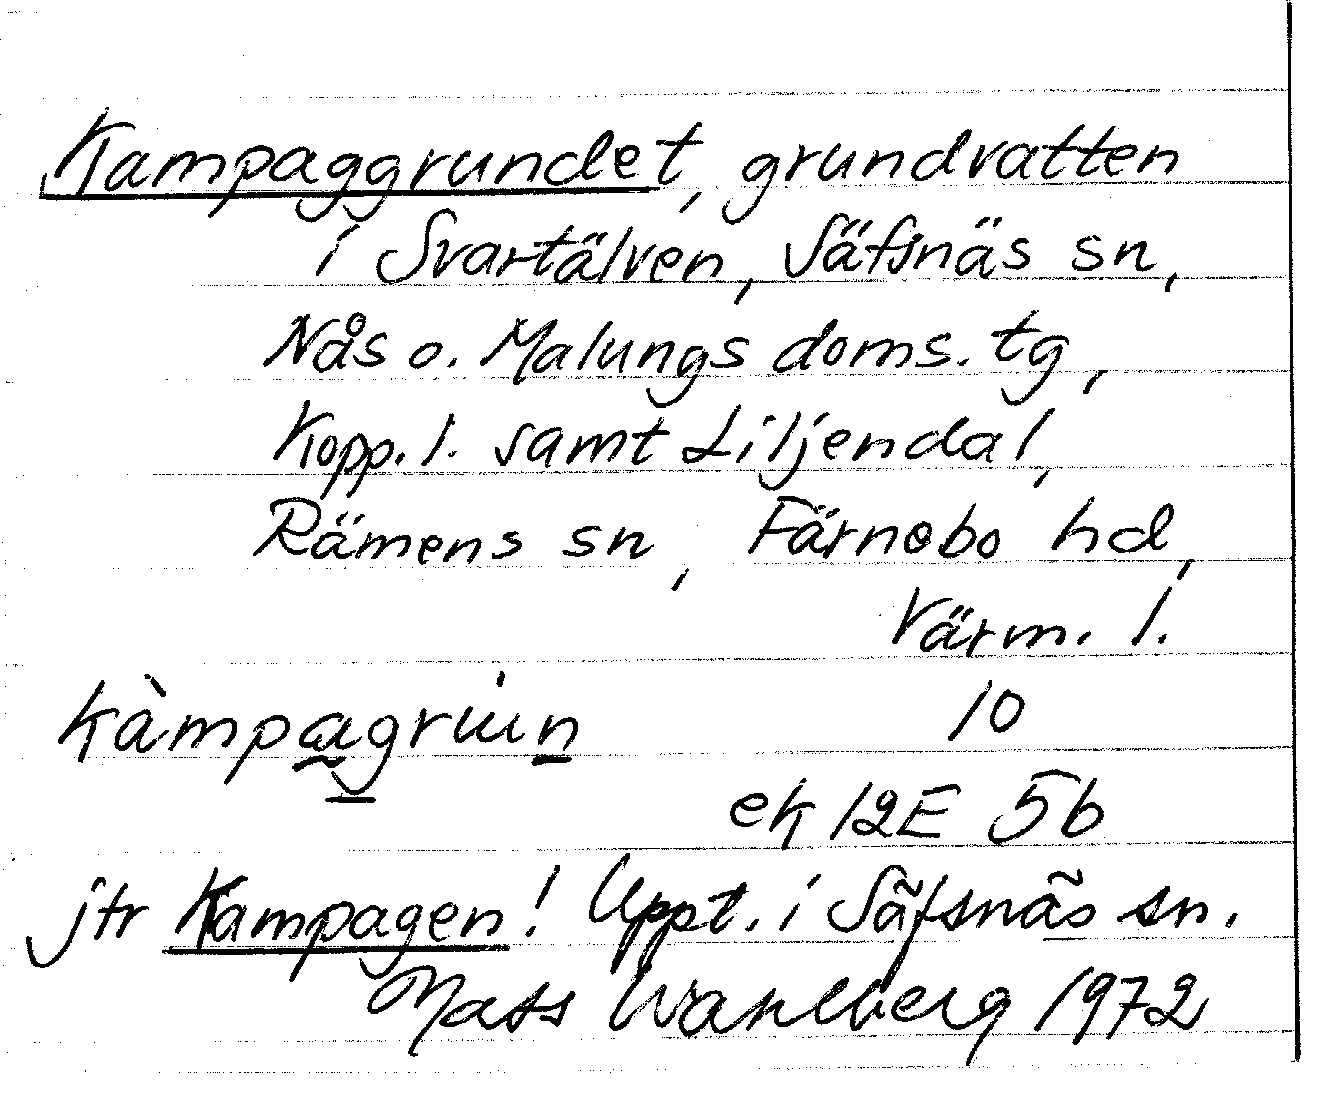 Kampaggrundet, grundvatten
i Svartälven, Säfsnäs sn,
Nås o. Malungs doms. tg,
Kopp. l. samt Liljendal,
Rämens sn, Färnebo hd,
Värm. l.
kàmpagru̇n 10
ek 12E 5b
jfr Kampagen! Uppt. i Säfsnäs sn.
Mats Wahlberg 1972